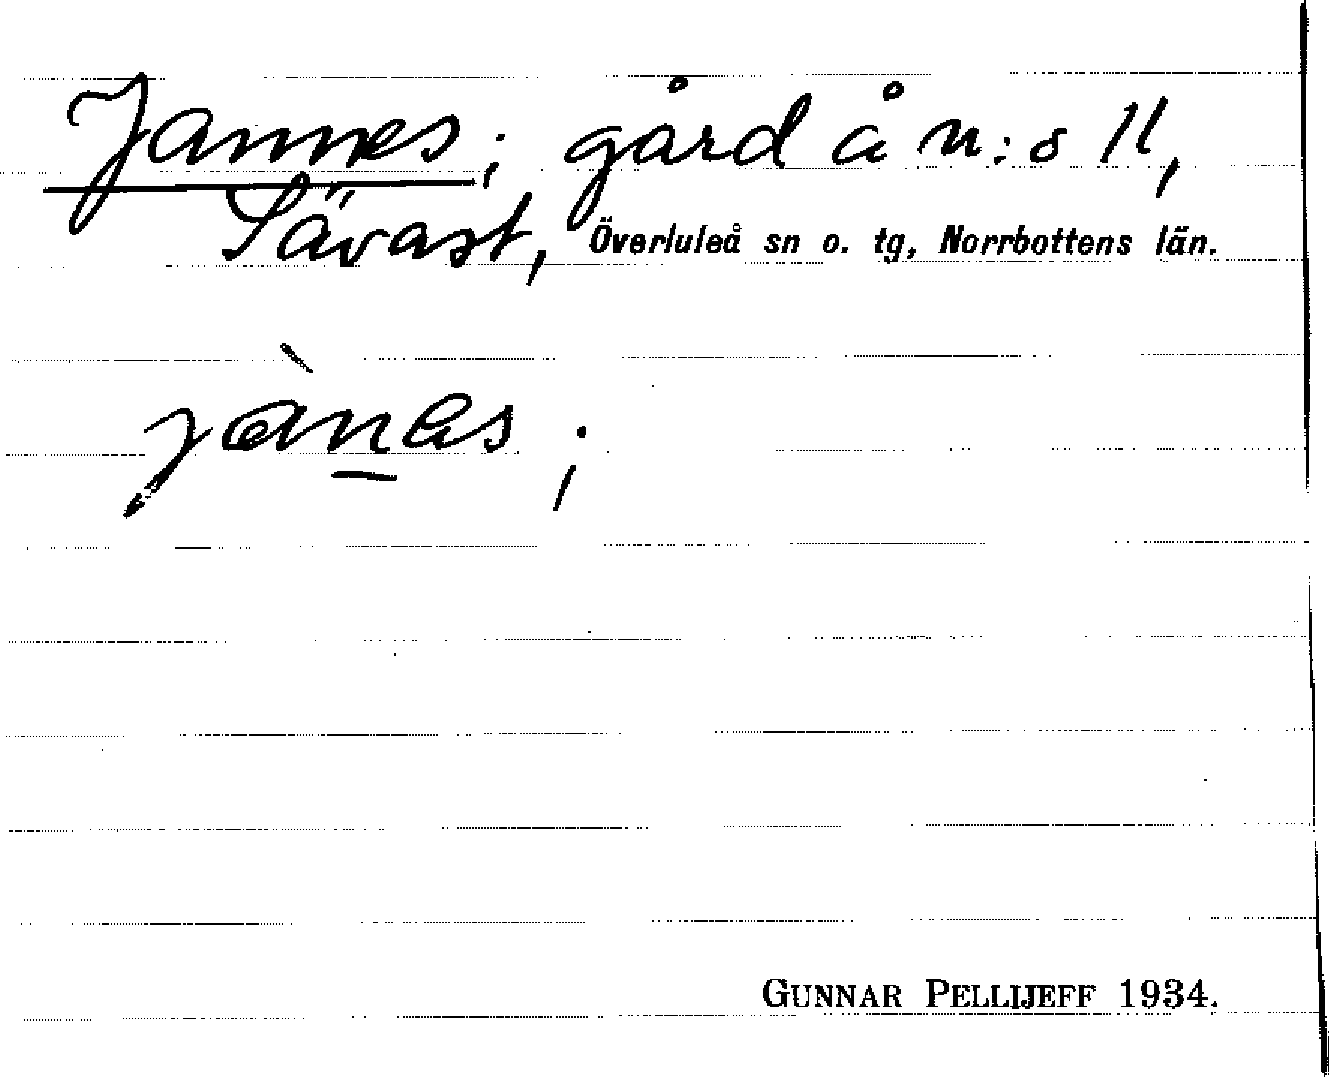 Jannes; gård å n:o 11,
Sävast, Överluleå sn o. tg, Norrbottens län.
jànas;
GUNNAR PELLIJEFF 1934.